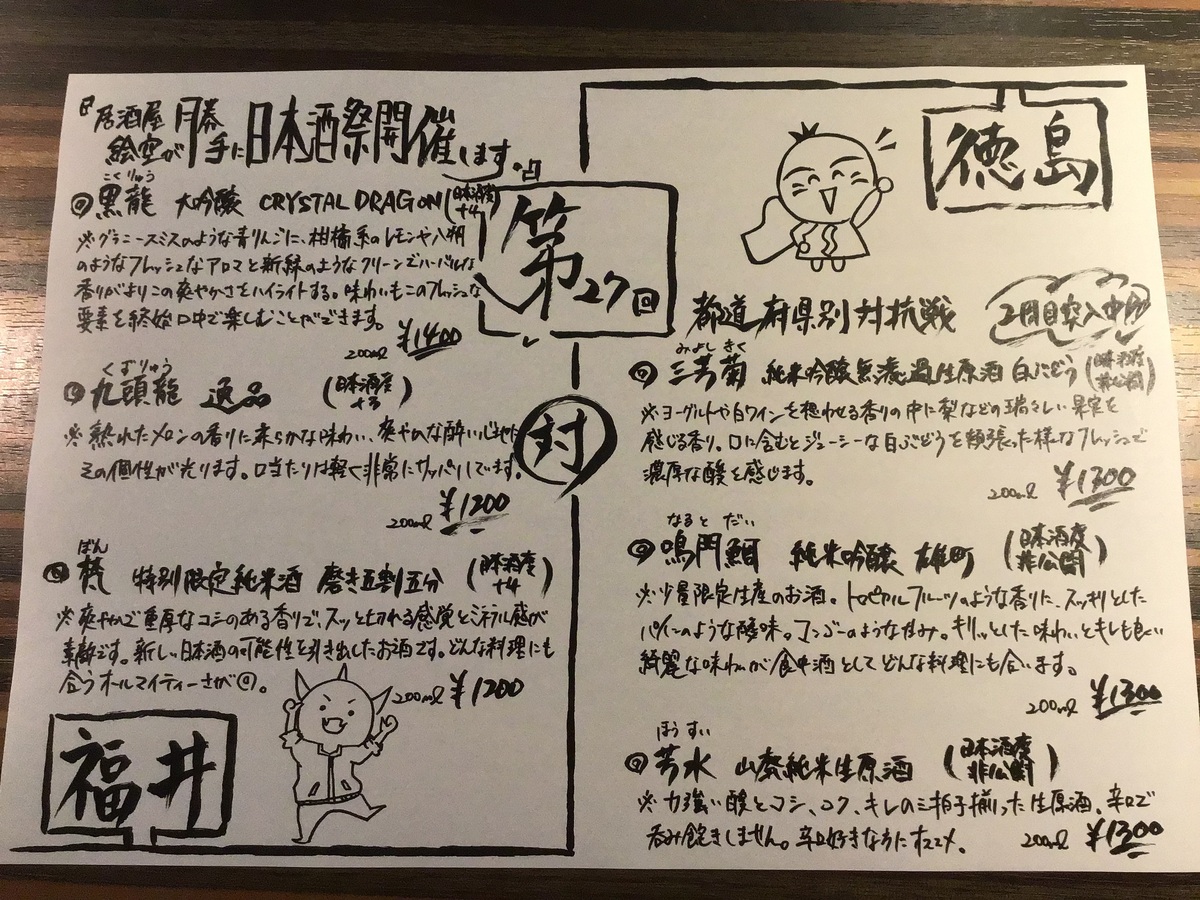 『居酒屋 絵空が 勝手に日本酒祭開催します。』
第27回
こくりゅう
黒龍 大吟醸 CRYSTAL DRAGON (日本酒度 +4)
※グラニースミスのような青りんごに、柑橘系のレモンや八朔
のようなフレッシュなアロマと新緑のようなクリーンでハーバルな
香りがよりこの爽やかさをハイライトする。味わいもこのフレッシュな
要素を終始口中で楽しむことができます。
200ml ¥1400
くずりゅう
九頭龍 逸品 (日本酒度 +3)
※熟れたメロンの香りに柔らかな味わい、爽やかな酔い心地に
その個性が光ります。口当たりは軽く非常にサッパリしてます。
200ml ¥1200
ぼん
梵 特別限定純米酒 磨き五割五分 (日本酒度 +4)
※爽やかで重厚なコシのある香りで、スッと切れる感覚とミネラル感が
素敵です。新しい日本酒の可能性を引き出したお酒です。どんな料理にも
合うオールマイティーさが◎。
200ml ¥1200
福井
対
徳島
都道府県別対抗戦
2周目突入中
みよしきく
三芳菊 純米吟醸無濾過生原酒 白ぶどう (日本酒度 非公開)
※ヨーグルトや白ワインを想わせる香りの中に梨などの瑞々しい果実を
感じる香り。口に含むとジューシーな白ぶどうを頬張った様なフレッシュで
濃厚な酸を感じます。
200ml ¥1300
なると だい
鳴門鯛 純米吟醸 雄町 (日本酒度 非公開)
※少量限定生産のお酒。トロピカルフルーツのような香りに、スッキリとした
パインのような酸味。マンゴーのような甘み。キリッとした味わいとキレも良い
綺麗な味わいが食中酒としてどんな料理にも合います。
200ml ¥1300
ほうすい
芳水 山廃純米生原酒 (日本酒度 非公開)
※力強い酸とコシ、コク、キレの三拍子揃った生原酒、辛口で
呑み飽きしません。辛口好きな方にオススメ。
200ml ¥1300